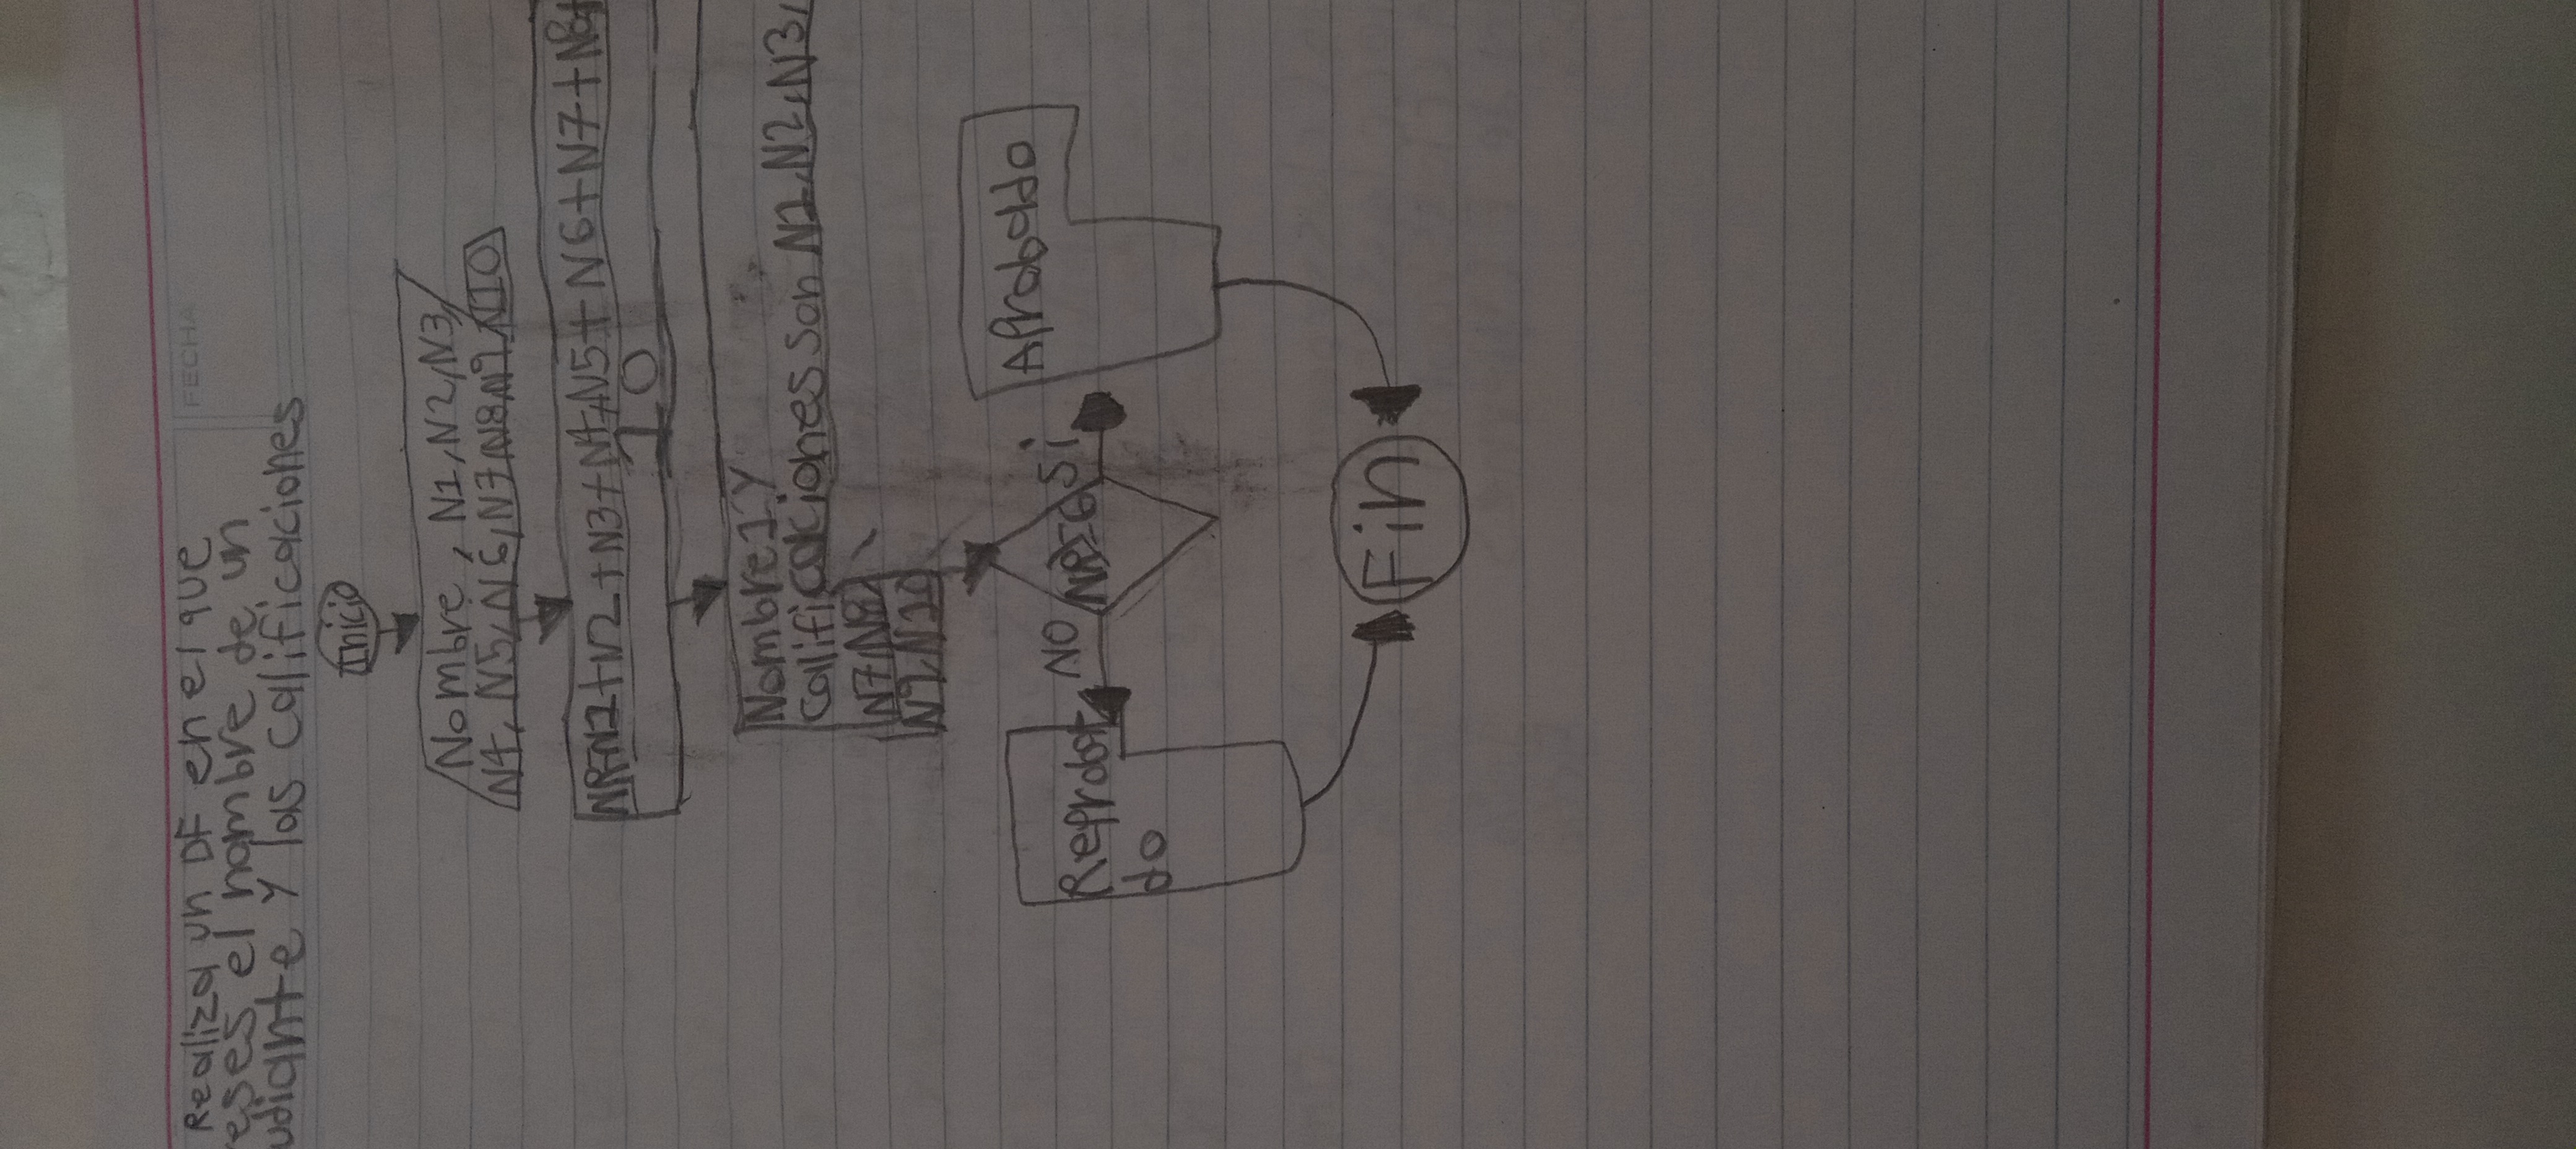 Realiza un DF en el que
eses el nombre de un
udiante y las calificaciones
FECHA
Inicio
Nombre, N1, N2, N3,
N4, N5, N6, N7, N8, N9, N10
NP=N1+N2+N3+N4+N5+N6+N7+N8+
10
Nombre 1 y
calificaciones son N1, N2, N3,
N7, N8,
N9, N10
Reprobado
NO
Si
Aprobado
Fin